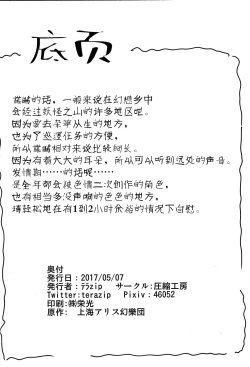 底页
的话，一般来说在幻想乡中
会经过妖怪之山的许多地区呢。
因为要去朵滞从生的地方，
也为了巡逻任务的方便，
所以 相对来说比较闷长。
因为有着大大的耳朵，所以可以听到远处的声音。
发情期……的话呢……
是全年都会被色情二次创作的角色，
也有相当多没声响的色色的地方，
请轻松地在有1到2小时余裕的情况下自慰。
奥付
発行日：2017/05/07
発行者：テラzip サークル：圧縮工房
Twitter:terazip Pixiv：46052
印刷:㈱栄光
原作： 上海アリス幻樂団